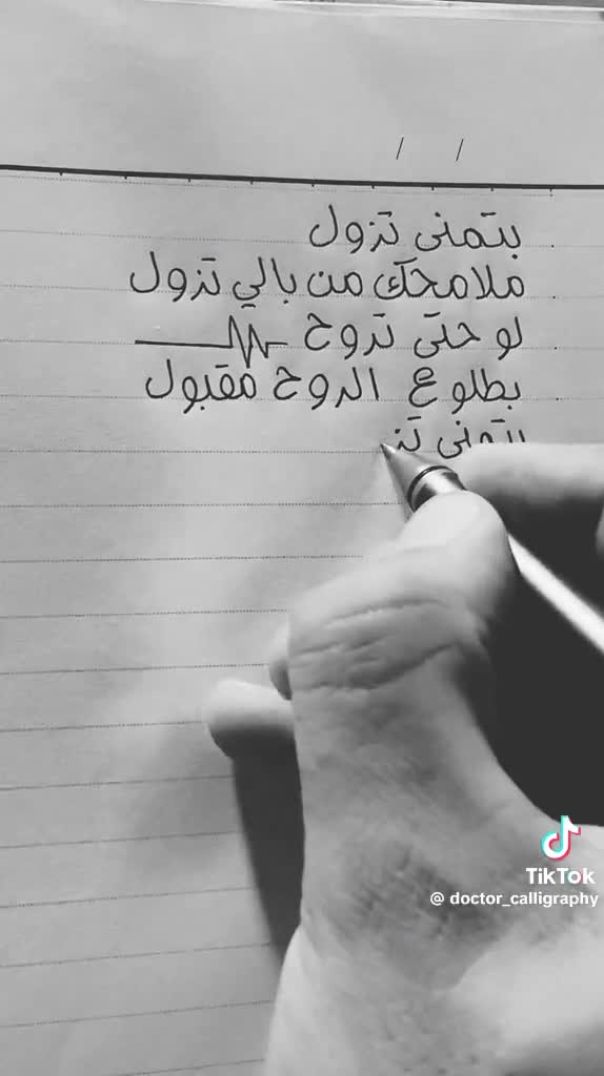 / /
بتمنى تزول
ملامحك من بالي تزول
لو حتى تروح
بطلوع الروح مقبول
بتمنى تز
TikTok
@ doctor_calligraphy